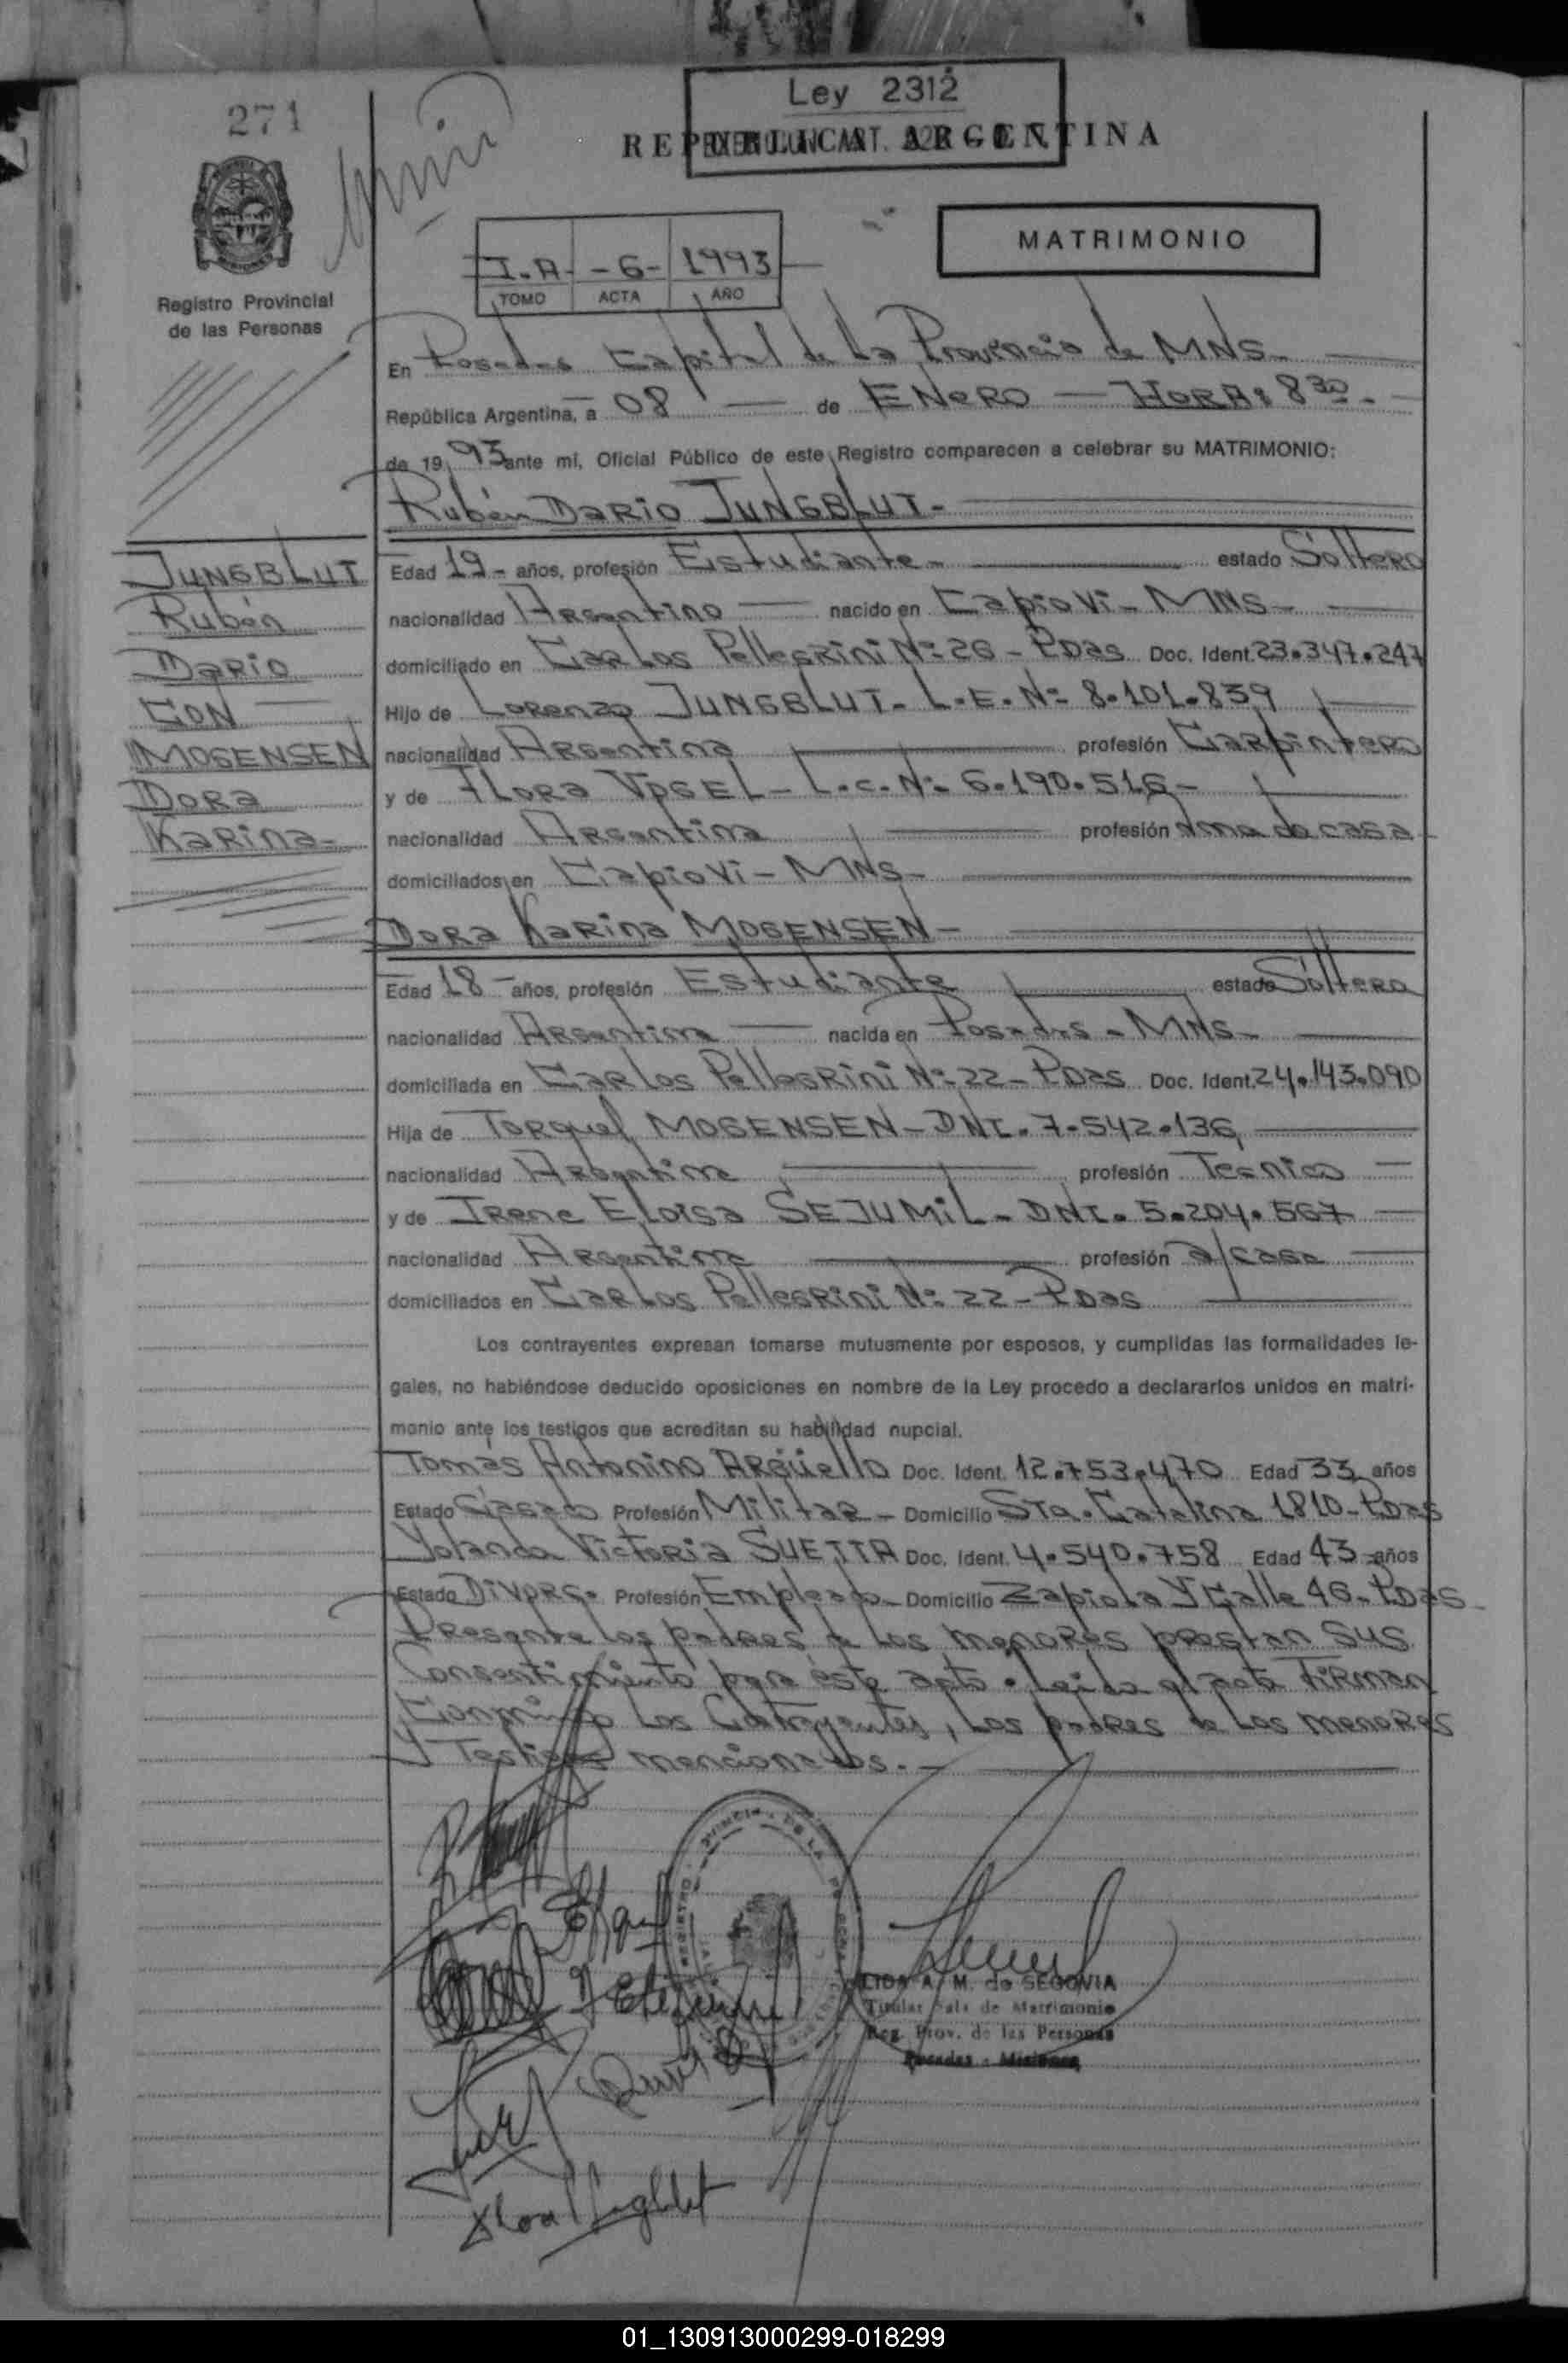 271
Ley 2312
REPUBLICA ARGENTINA
MATRIMONIO
I.A- -6- 1993
TOMO ACTA AÑO
Registro Provincial
de las Personas
En Posadas Capital de La Provincia de MNS-
República Argentina, a 08 de ENERO HORA: 8 30.-
de 19 93 ante mí, Oficial Público de este Registro comparecen a celebrar su MATRIMONIO:
Rubén Dario JUNGBLUT-
JUNGBLUT
Rubén
Dario
CON
MOGENSEN
Dora
Karina-
Edad 19- años, profesión Estudiante- estado Soltero
nacionalidad Argentino nacido en Capiovi- MNS-
domiciliado en Carlos Pellegrini Nº 26 - Pdas Doc. Ident. 23.347.247
Hijo de Lorenzo JUNGBLUT- L.E. Nº 8.101.839
nacionalidad Argentina profesión Carpintero
y de Flora VOGEL- L.C. Nº 6.190.516-
nacionalidad Argentina profesión Ama de casa
domiciliados en Capiovi- MNS-
Dora Karina MOGENSEN-
Edad 18 - años, profesión Estudiante estado Soltera
nacionalidad Argentina nacida en Posadas - MNS-
domiciliada en Carlos Pellegrini Nº 22- Pdas Doc. Ident. 24.143.090
Hija de Torquel MOGENSEN- DNI. 7.542.136
nacionalidad Argentina profesión Tecnico
y de Irene Eloisa SEJUMIL- DNI. 5.204.567
nacionalidad Argentina profesión a/casa
domiciliados en Carlos Pellegrini Nº 22- Pdas
Los contrayentes expresan tomarse mutuamente por esposos, y cumplidas las formalidades le-
gales, no habiéndose deducido oposiciones en nombre de la Ley procedo a declararlos unidos en matri-
monio ante los testigos que acreditan su habilidad nupcial.
Tomás Antonino ARGüello Doc. Ident. 12.753.470 Edad 33 años
Estado Casado Profesión Militar- Domicilio Sta. Catalina 1810- Pdas
Yolanda Victoria SUETTA Doc. Ident. 4.540.758 Edad 43 años
Estado Divorc. Profesión Empleada- Domicilio Zapiola Y Calle 46- Pdas-
Presente los padres de los menores prestan sus
Consentimiento para éste acto. Leida el acta Firman
Conmigo los Contrayentes, los padres de los menores
Y Testigos mencionados.-
LIDA A. M. de SEGOVIA
Titular Sala de Matrimonio
Reg. Prov. de las Personas
Posadas - Misiones
01_130913000299-018299